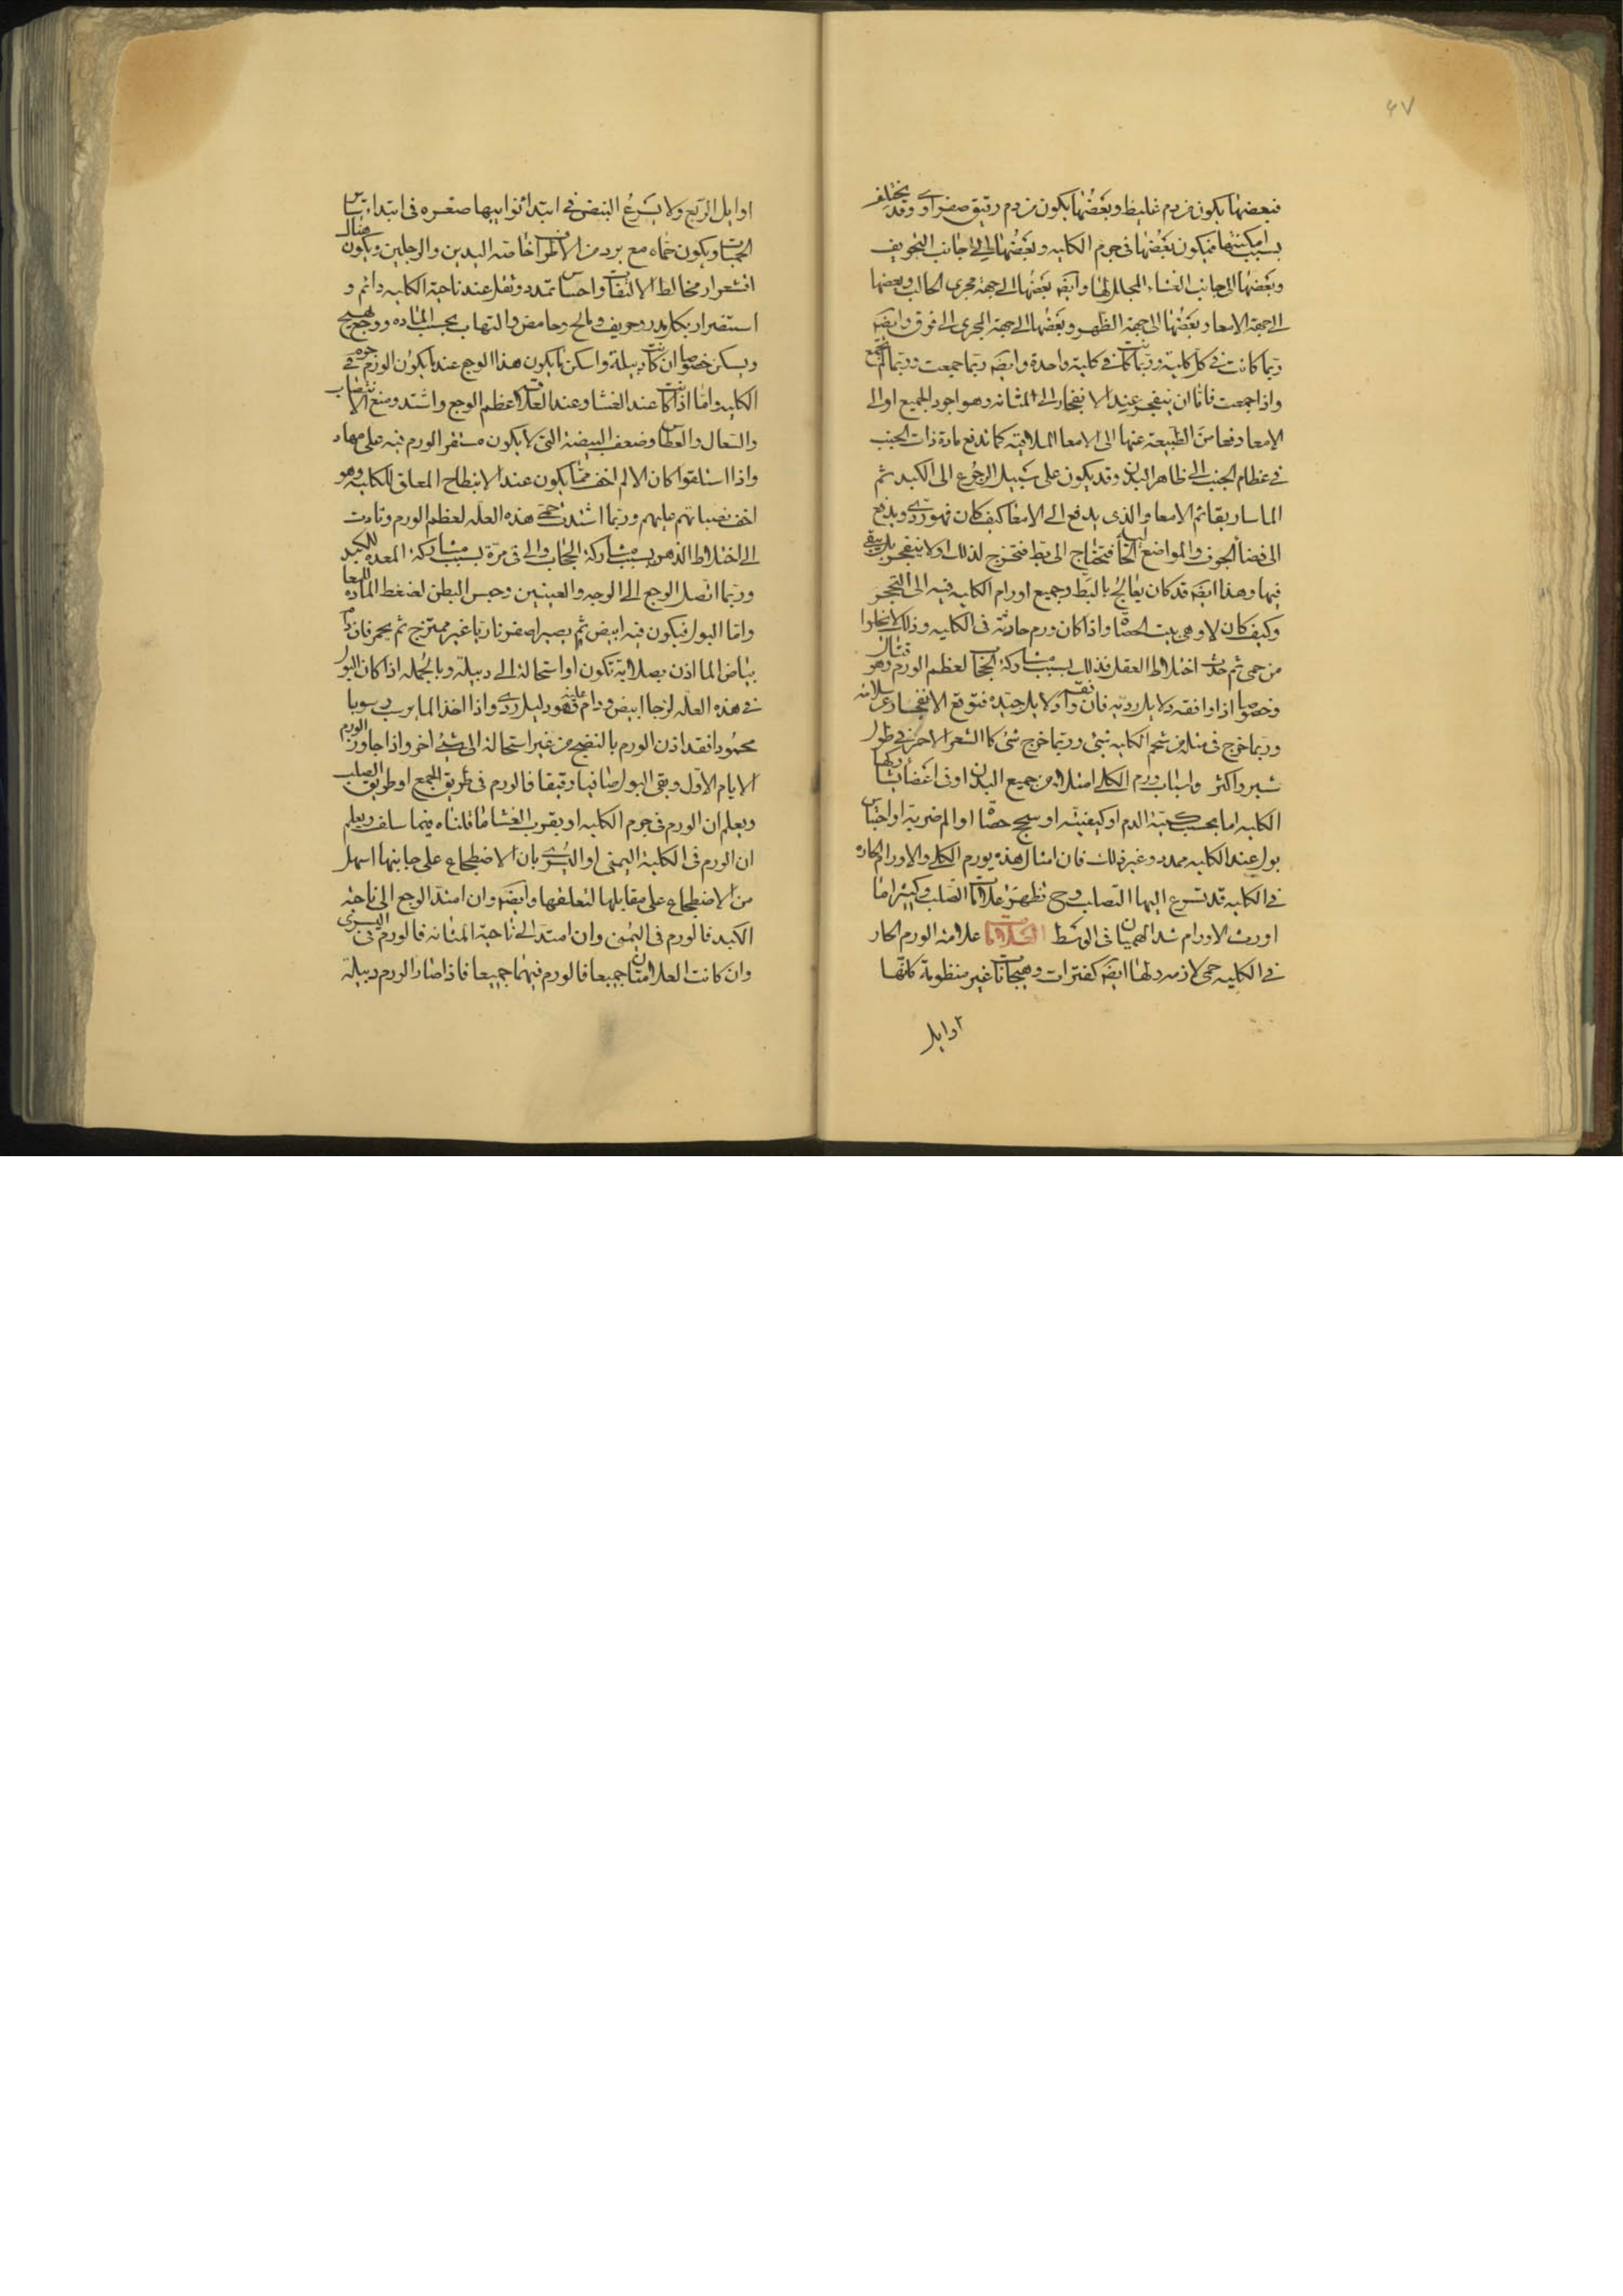 ٤٧
فبعضها يكون من دم غليظ وبعضها يكون من دم رقيق صفراوى وقد يختلف
بسبب امكنتها فيكون بعضها فى جرم الكليه وبعضها الى جانب التجويف
وبعضها الى جانب الغشاء المجلل لها وايضه بعضها الى جهة مجرى الحالب وبعضها
الى جهة الامعا وبعضها الى جهة الظهر وبعضها الى جهة المجرى الى فوق وايضه
ربما كانت فى كل كليه وربما كانت فى كلية واحدة وايضه ربما جمعت وربما لم تجمع
واذا جمعت فاما ان ينفجر عند الانفجار الى المثانه وهو اجود الجميع او الى
الامعا دفعا من الطبيعة عنها الى الامعا الملاقيه كما تدفع مادة ذات الجنب
فى عظام الجنب الى ظاهر البدن وقد يكون على سبيل الرجوع الى الكبد ثم
الماساريقا ثم الامعا والذى يدفع الى الامعا كيف كان فهو ردى ويدفع
الى فضا الجوف والمواضع الخاليه فتحتاج الى بط فتخرج لذلك او لا ينفجر بل يبقى
فيها وهذا ايضه قد كان يعالج بالبط وجميع اورام الكليه فيه الى التحجر
وكيف كان لا وهى بيت الحصاة واذا كان ورم حار فى الكليه وذلك لا يخلوا
من حمى ثم حدث اختلاط العقل فذلك بسبب مشاركة الحجاب لعظم الورم وهو قتال
وخصوصا اذا وافقه دلايل رديه فان وافقه دلايل جيده فتوقع الانفجار عن سلامه
وربما خرج فى مثله من شحم الكليه شئ وربما خرج شئ كالشعر الاحمر فى طول
شبر واكثر واسباب ورم الكلى امتلا من جميع البدن او فى اعضا يشاركها
الكليه اما بحسب كمية الدم او كيفيته او سحج حصاة او الم ضربة او احتباس
بول عند الكليه ممدد وغير ذلك فان امثال هذه يورم الكلى والاورام الحاره
فى الكليه قد تسرع اليها التصلب وح تظهر علامات التصلب وكثيرا ما
اورث الاورام شد الهميان فى الوسط العلامات علامة الورم الحار
فى الكليه حمى لازمه ولها ايضه كفترات وهيجانات غير منظومة كانها
اوايل
اوايل الربع ولا يسرع النبض فى ابتدا نوايبها صغره فى ابتدا ساير
الحميات ويكون حماه مع برد من الاطراف خاصة اليدين والرجلين ويكون هناك
اقشعرار مخالط الالتهاب واحساس تمدد وثقل عند ناحية الكليه دائم و
استضرار بكل مدر وحريف ومالح وحامض والتهاب بحسب الماده ووجع يهيج
ويسكن خصوصا ان كانت دبيلة واسكن ما يكون هذا الوجع عندما يكون الورم فى جرم
الكليه واما اذا كانت عند الغشا وعند العلاقه عظم الوجع واشتد ومنع الانتصاب
والسعال والعطاس وضعف البيضة التى لا يكون مستقر الورم فيه على مهاد
واذا استلقوا كان الالم اخف مما يكون عند الانبطاح المعلق للكليه وهو
اخف نصباتهم عليهم وربما اشتدت حمى هذه العله لعظم الورم وتادت
الى اختلاط الذهن بسبب مشاركة الحجاب والى قى مرة بسبب مشاركة المعده للكبد
وربما اتصل الوجع الى الوجه والعينين وحبس البطن لضغط الماده للمعا
واما البول فيكون فيه ابيض ثم يصير اصفر ناريا غير ممتزج ثم يحمر فان دام
بياض الما اذن بصلابة تكون او استحالة الى دبيلة وبالجمله اذا كان البول
فى هذه العله لزجا ابيض ودام عليه فهو دليل ردى واذا اخذ الما يرسب رسوبا
محمودا فقد اذن الورم بالنضج من غير استحالة الى شئ اخر واذا جاوز الورم
الايام الاول وبقى البول صافيا رقيقا فالورم فى طريق الجمع او طريق الصلب
ويعلم ان الورم فى جرم الكليه او بقرب الغشا ما قلناه فيما سلف ويعلم
ان الورم فى الكلية اليمنى او اليسرى بان الاضطجاع على جانبها اسهل
من الاضطجاع على مقابلها لتعلقها وايضه وان امتد الوجع الى ناحية
الكبد فالورم فى اليمنى وان امتد الى ناحية المثانه فالورم فى اليسرى
وان كانت العلامتان جميعا فالورم فيهما جميعا فاذا صار الورم دبيلة